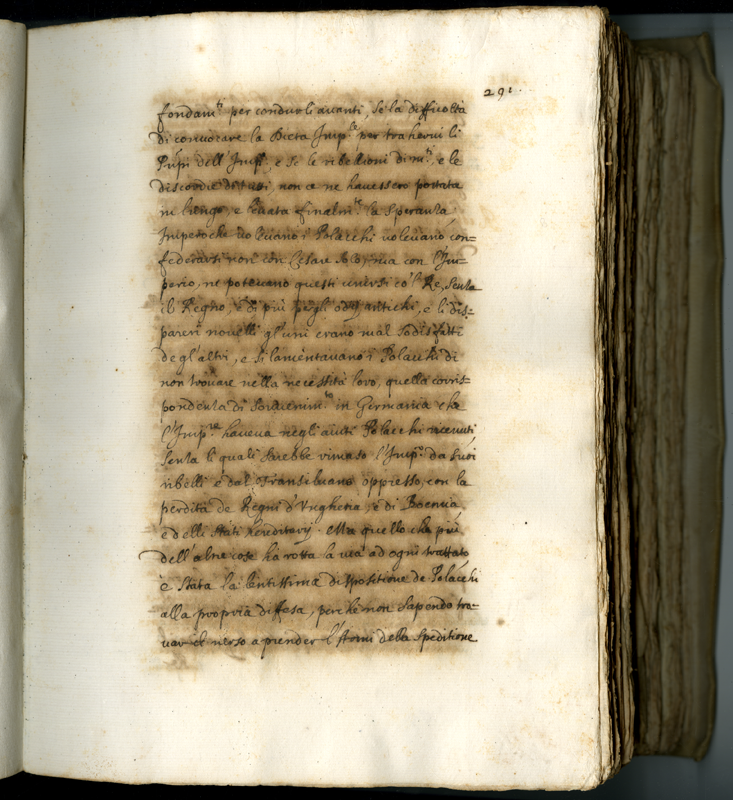 291.
fondam.ti per condurli avanti, se la difficoltà
di convocare la Dieta Imp.le per trahervi li
Pñpi dell'Imp.º, e se le ribellioni di m.ti, e le
discordie di tutti, non ce ne havessero portata
in lungo, e levata finalm.te la speranza
Imperoche volevano i Polacchi volevano con-
federarsi non con Cesare solo, ma con l'Im-
perio, ne potevano questi unirsi co'l Re, senza
il Regno, e di più pegli odij antichi, e li dis-
pareri novelli gl'uni erano mal sodisfatti
degl'altri, e si lamentavano i Polacchi di
non trovare nella necessità loro, quella corris-
pondenza di sovvenim.to in Germania che
l'Imp.re haveva negli aiuti Polacchi ricevuti
senza li quali sarebbe rimaso l'Imp.re da suoi
ribelli e dal Transilvano oppresso, con la
perdita de Regni d'Vngheria, e di Boemia
e delli Stati hereditarij. Ma quello che più
dell'altre cose hà rotta la via ad ogni trattato
è stata la lentissima dispositione de Polacchi
alla propria difesa, perche non sapendo tro-
var il verso a prender l'armi della speditione